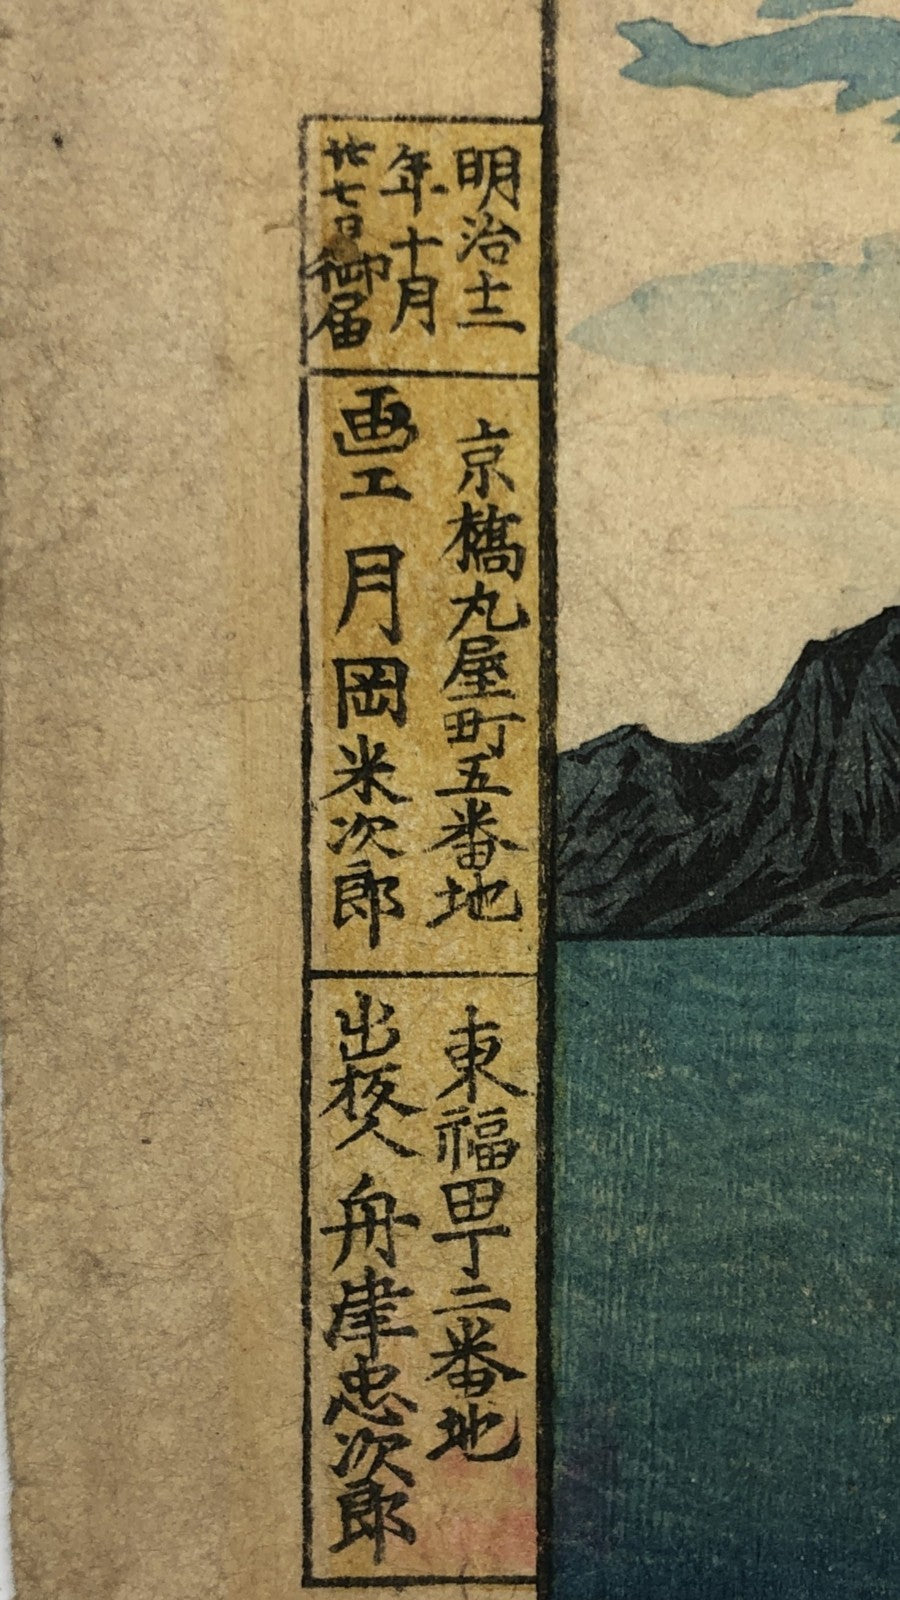 明治十二
年十月
廿七日御届
京橋丸屋町五番地
画工 月岡米次郎
東福田丁二番地
出板人 舟津忠次郎